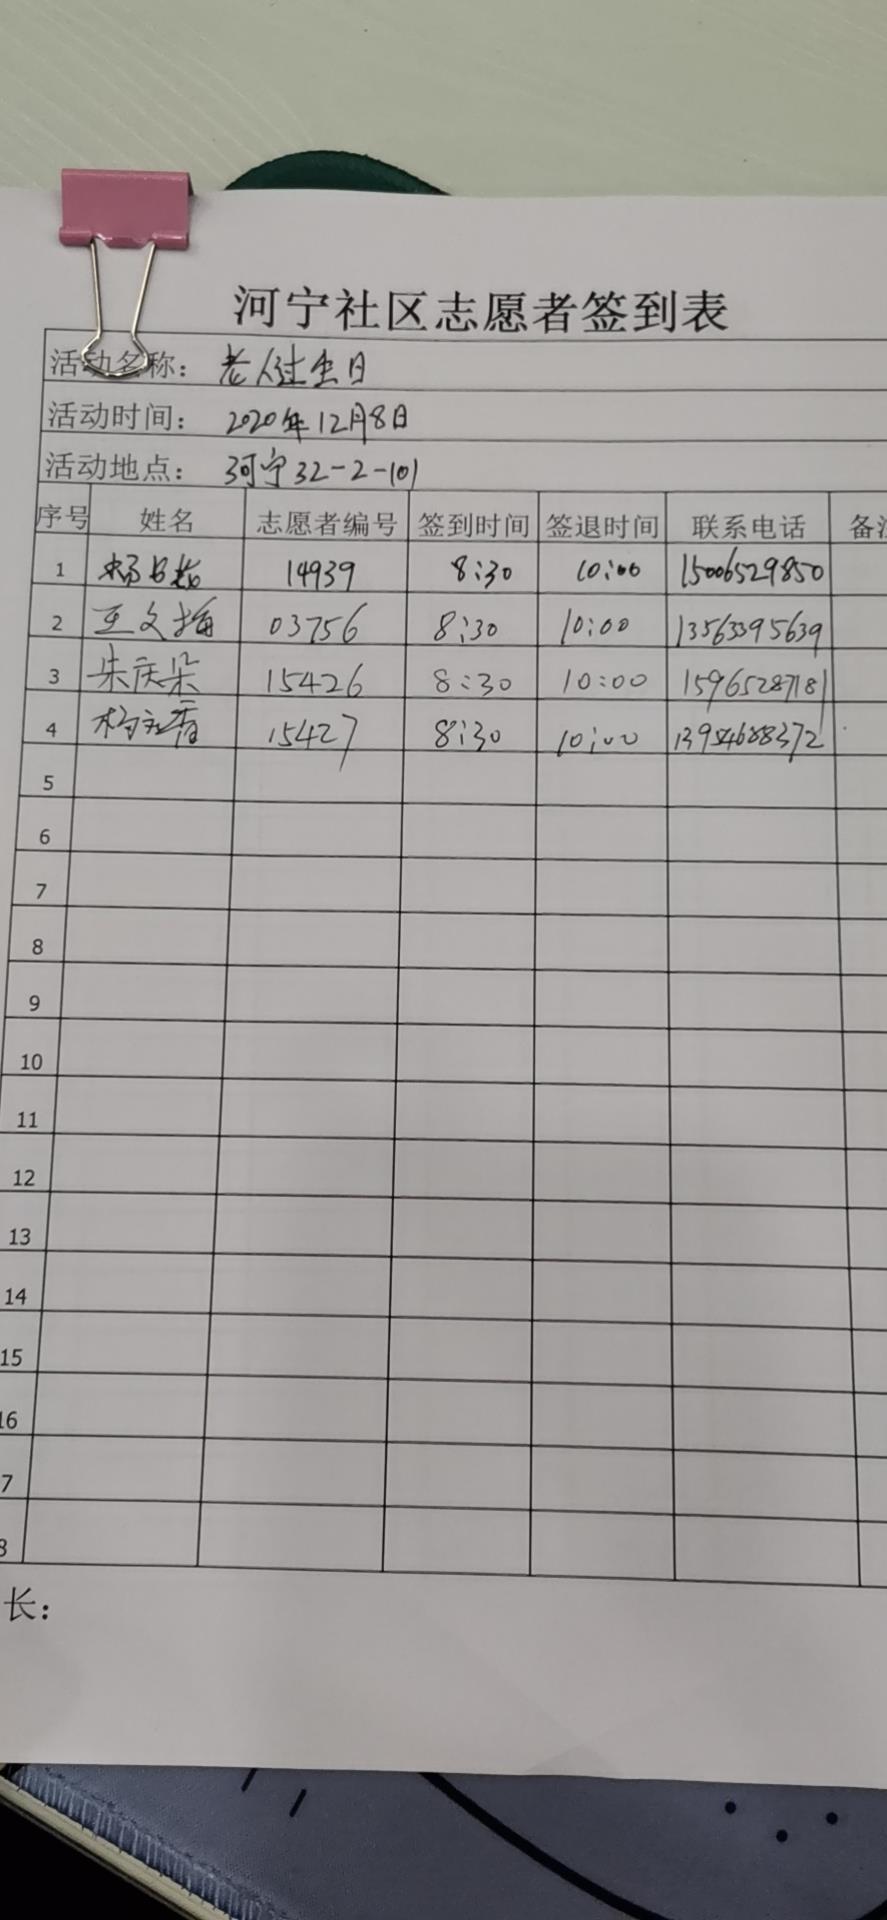 河宁社区志愿者签到表
活动名称： 老人过生日
活动时间： 2020年12月8日
活动地点： 河宁32-2-101
序号 姓名 志愿者编号 签到时间 签退时间 联系电话 备注
1 14939 8:30 10:00 15006529850
2 王文梅 03756 8:30 10:00 13563395639
3 朱庆朵 15426 8:30 10:00 15965287181
4 15427 8:30 10:00 13954688372
5
6
7
8
9
10
11
12
13
14
15
16
7
8
长：